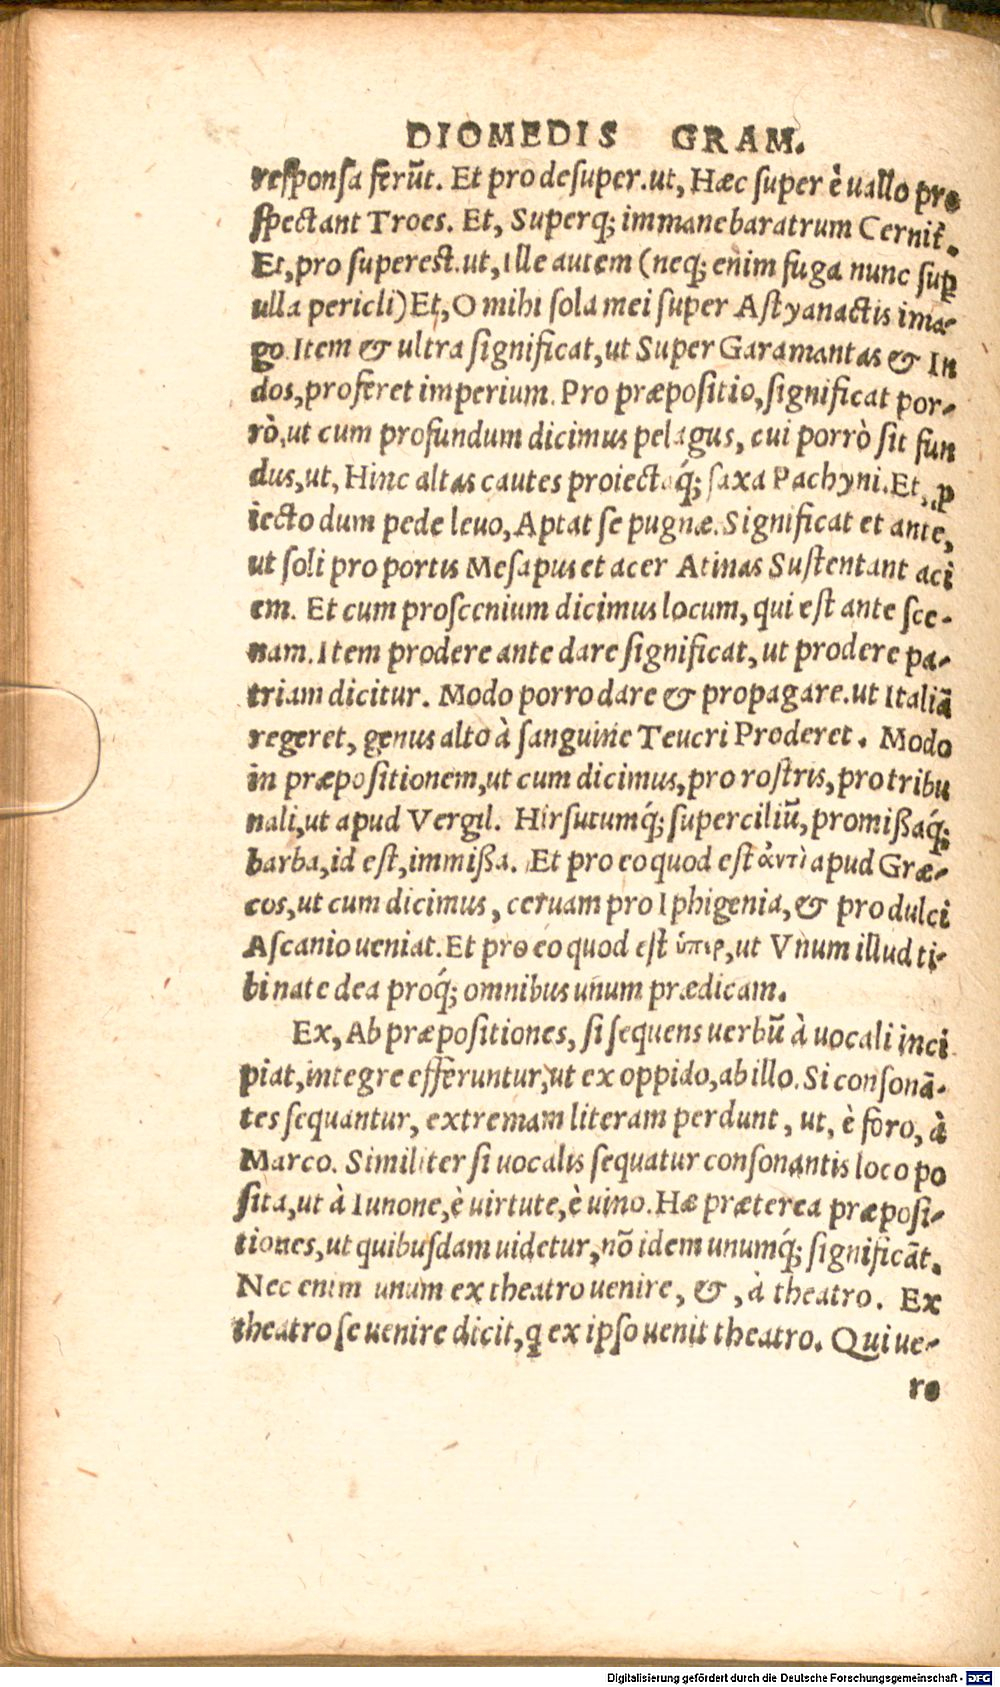 DIOMEDIS GRAM.
responsa ferūt. Et pro desuper. ut, Hæc super è uallo pro
spectant Troes. Et, Superq; immane baratrum Cernit.
Et, pro superest. ut, Ille autem (neq; enim fuga nunc sup
ulla pericli) Et, O mihi sola mei super Astyanactis ima-
go. Item & ultra significat, ut Super Garamantas & In
dos, proferet imperium. Pro præpositio, significat por-
rò, ut cum profundum dicimus pelagus, cui porrò sit fun
dus, ut, Hinc altas cautes proiectaq́; saxa Pachyni. Et, ꝓ
iecto dum pede leuo, Aptat se pugnæ. Significat et ante,
ut soli pro portis Mesapus et acer Atinas Sustentant aci
em. Et cum proscenium dicimus locum, qui est ante sce-
nam. Item prodere ante dare significat, ut prodere pa-
triam dicitur. Modo porro dare & propagare. ut Italiā
regeret, genus alto à sanguine Teucri Proderet. Modo
in præpositionem, ut cum dicimus, pro rostris, pro tribu
nali, ut apud Vergil. Hirsutumq́; superciliū, promißaq́;
barba, id est, immißa. Et pro eo quod est ἀντὶ apud Græ-
cos, ut cum dicimus, ceruam pro Iphigenia, & pro dulci
Ascanio ueniat. Et pro eo quod est ὑπὲρ, ut Vnum illud ti-
bi nate dea proq́; omnibus unum prædicam.
Ex, Ab præpositiones, si sequens uerbū à uocali inci
piat, integre efferuntur, ut ex oppido, ab illo. Si consonā-
tes sequantur, extremam literam perdunt, ut, è foro, à
Marco. Similiter si uocalis sequatur consonantis loco po
sita, ut à Iunone, è uirtute, è uino. Hæ præterea præposi-
tiones, ut quibusdam uidetur, nō idem unumq́; significāt.
Nec enim unum ex theatro uenire, &, à theatro. Ex
theatro se uenire dicit, q ex ipso uenit theatro. Qui ue-
ro
Digitalisierung gefördert durch die Deutsche Forschungsgemeinschaft - DFG